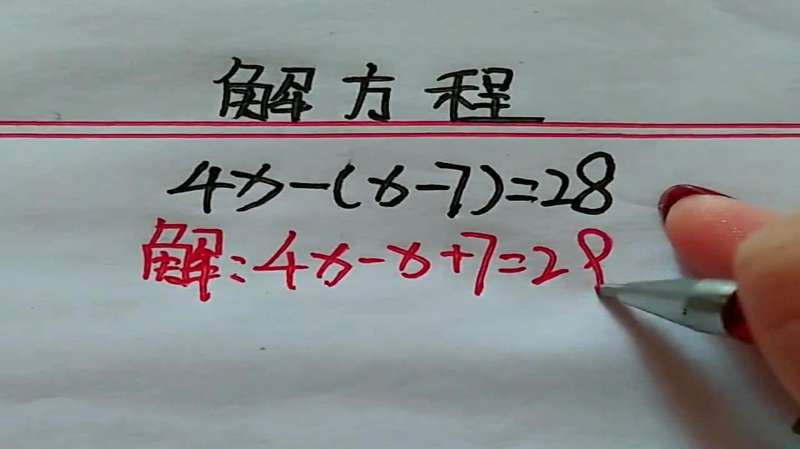 解方程
4x-(x-7)=28
解:4x-x+7=28